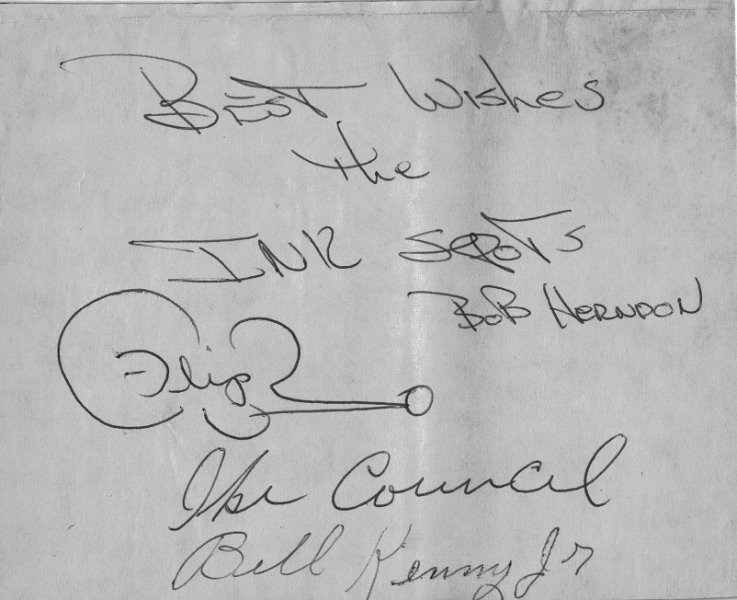 BEST Wishes
the
INK SPOTS
BOB HERNDON
Flip
Ike Council
Bill Kenny Jr